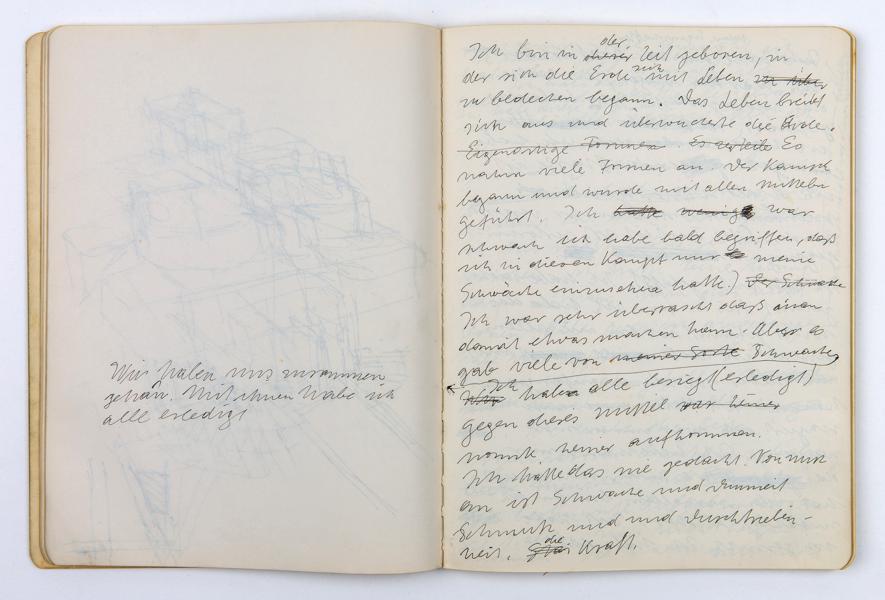 Wir haben uns zusammen
getan. Mit ihnen habe ich
alle erledigt
Ich bin in dieser der Zeit geboren, in
der sich die Erde sich mit Leben zu über
zu bedecken begann. Das Leben breitet
sich aus und überwucherte die Erde.
Eigenartige Formen. Es Es
nahm viele Formen an. Der Kampf
begann und wurde mit allen Mitteln
geführt. Ich hatte wenig war
schwach ich habe bald begriffen, daß
ich in diesen Kampf nur meine
Schwäche einzusehen hatte.) Der Schwache
Ich war sehr überrascht daß man
damit etwas machen kann. Aber es
gab viele von meiner Sorte Schwache,
Wir Ich habe alle besiegt (erledigt)
gegen dieses Mittel war keiner
konnte keiner aufkommen.
Ich hätte das nie gedacht. Von nun
an ist Schwäche und Dummheit
Schmutz und und Durchtrieben-
heit. die Kraft.